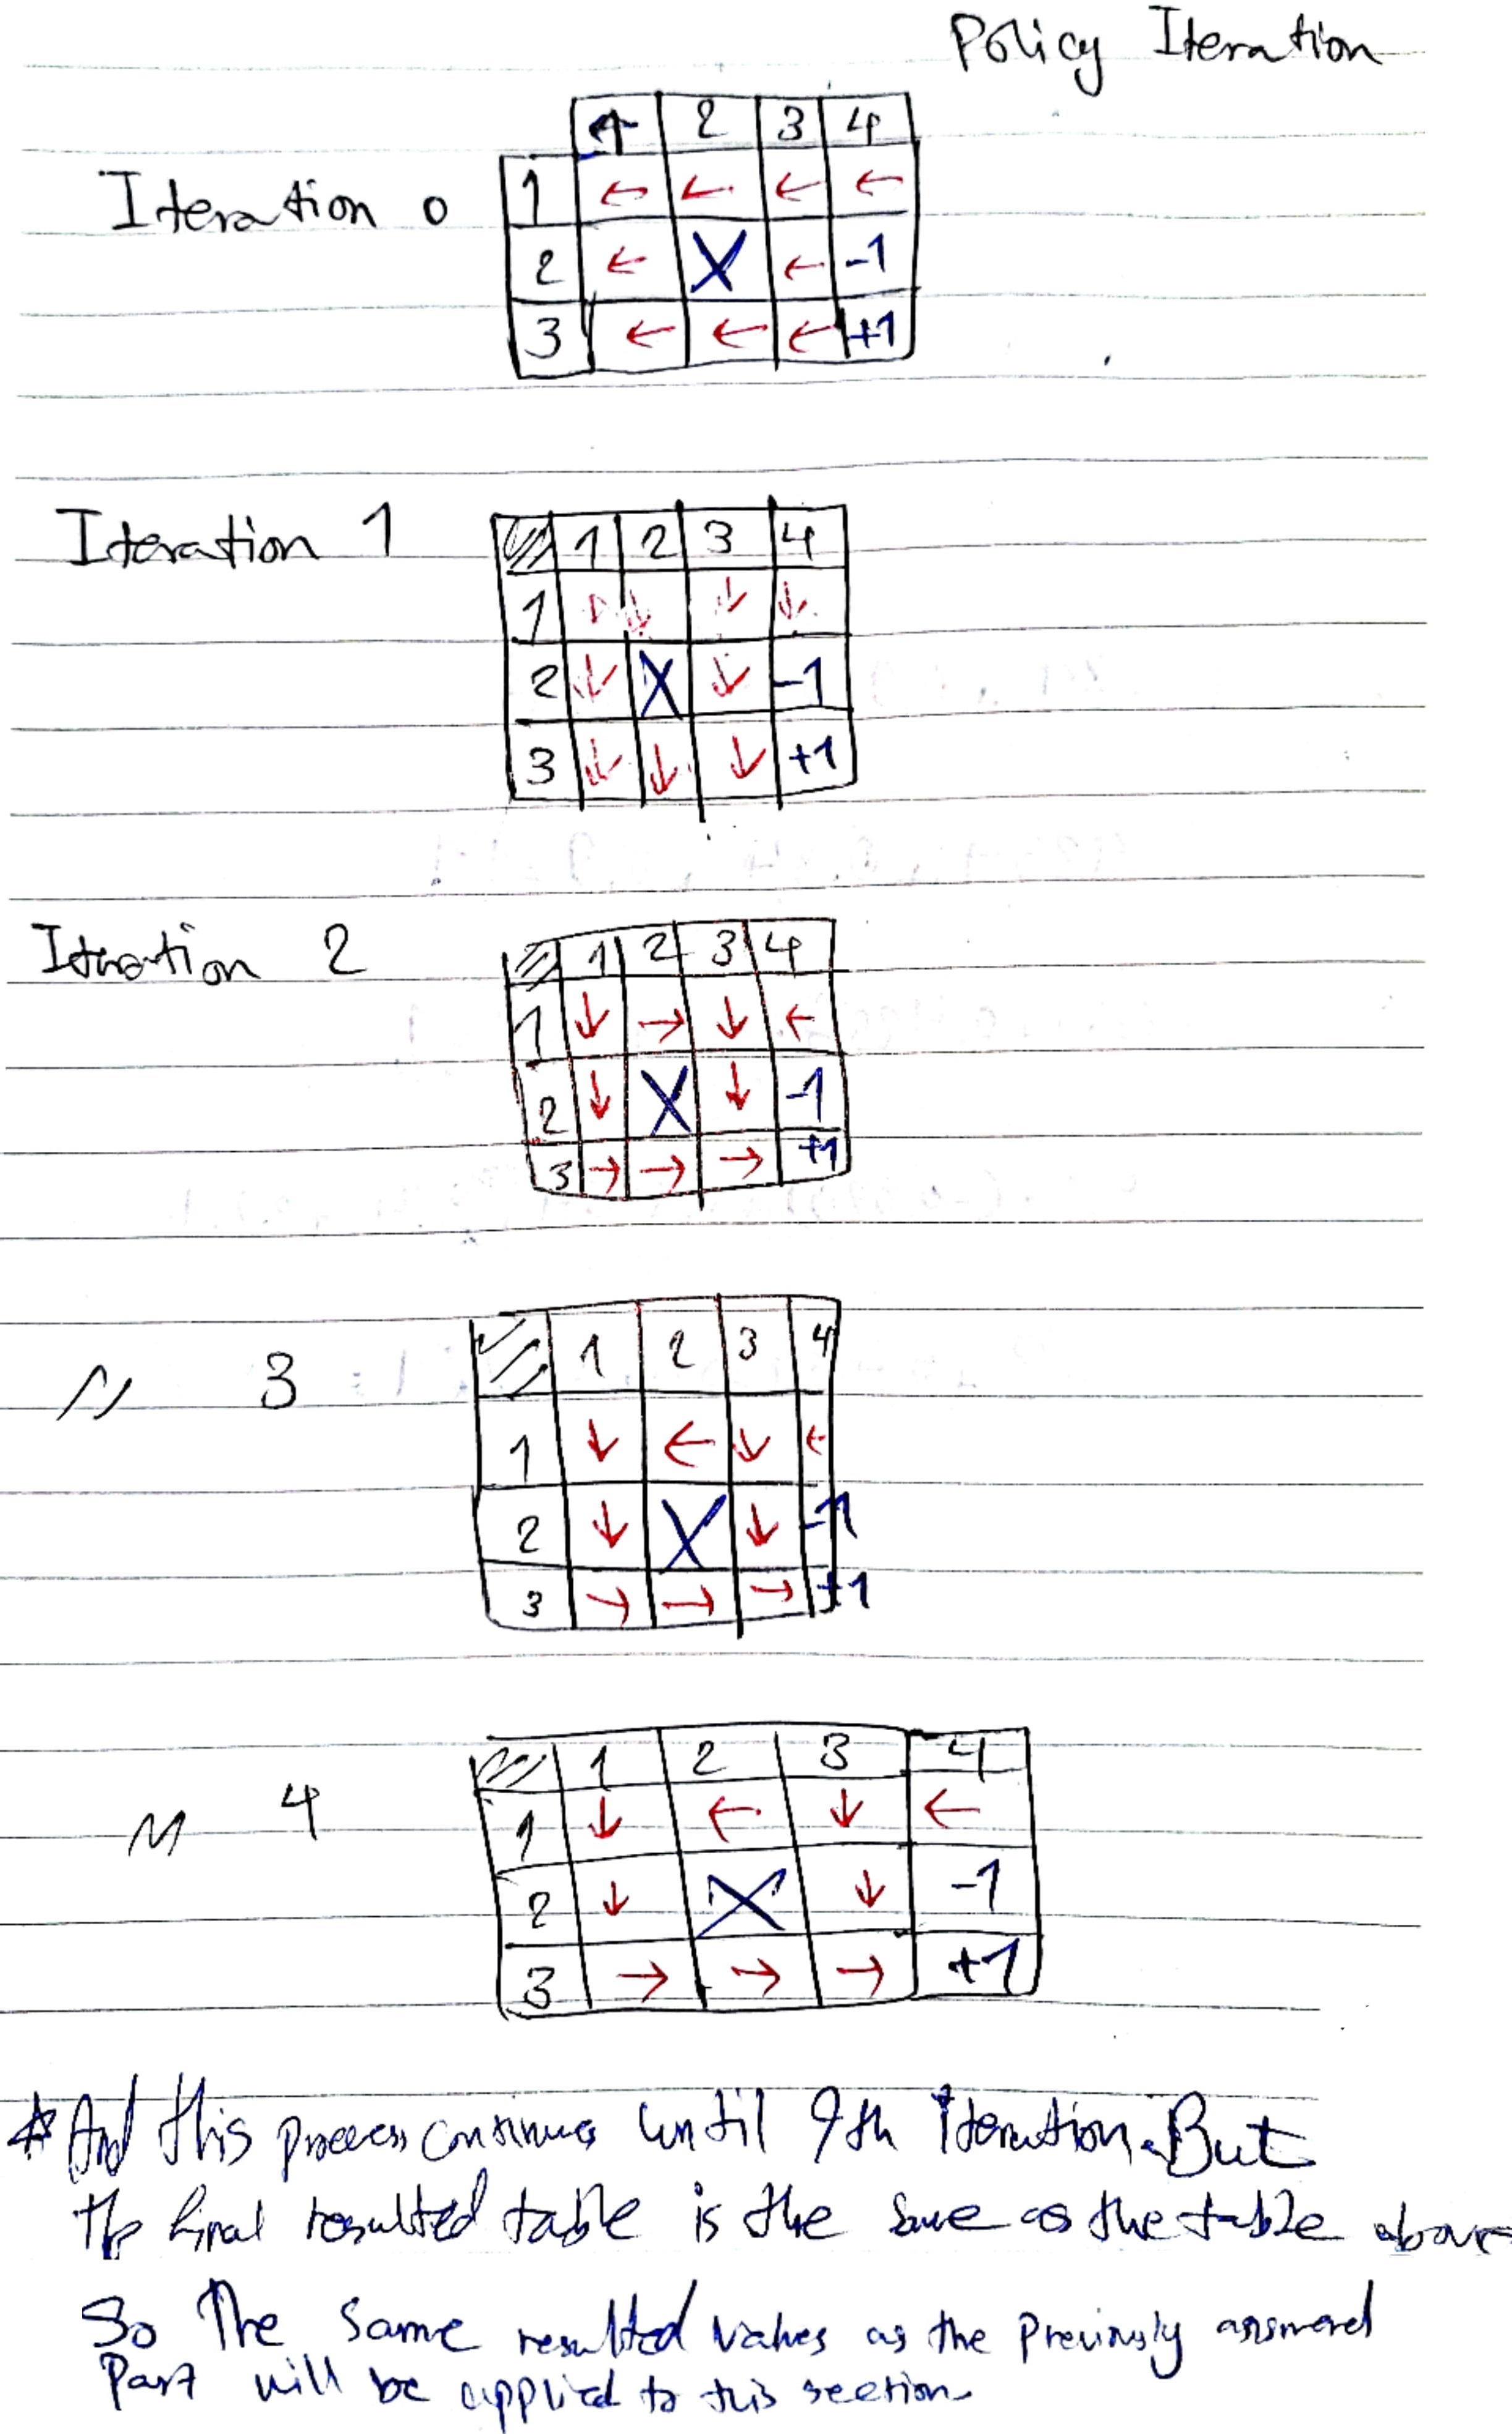 Policy Iteration
1 2 3 4
Iteration 0
1 ← ← ← ←
2 ← X ← -1
3 ← ← ← +1
Iteration 1
1 2 3 4
1 ↓ ↓ ↓
2 ↓ X ↓ -1
3 ↓ ↓ ↓ +1
Iteration 2
1 2 3 4
1 ↓ → ↓ ←
2 ↓ X ↓ -1
3 → → → +1
1 2 3 4
// 3
1 ↓ ← ↓ ←
2 ↓ X ↓ -1
3 → → → +1
1 2 3 4
// 4
1 ↓ ← ↓ ←
2 ↓ X ↓ -1
3 → → → +1
* And this process continues until 9th Iteration. But
the final resulted table is the same as the table above
So The same resulted values as the previously answered
Part will be applied to this section.